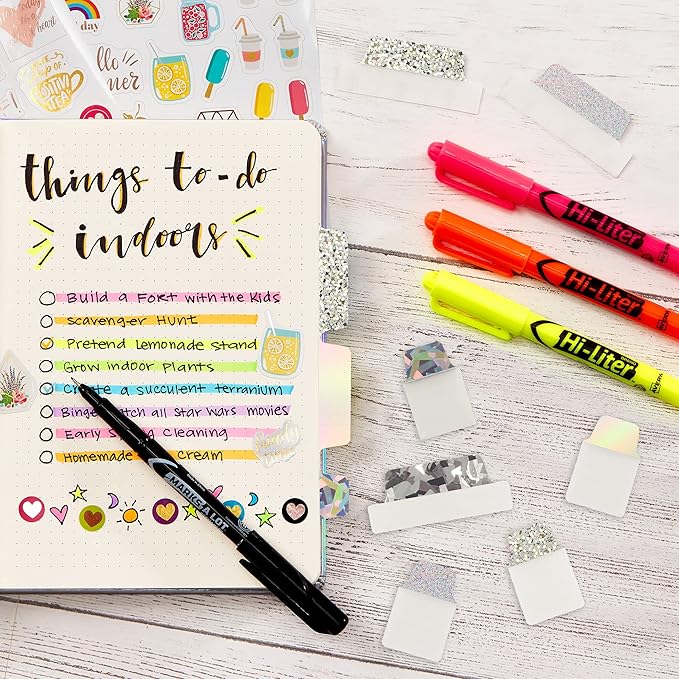 today
heart
hello
summer
CUP OF
POSITIVI
TEA
things to-do
indoors
Build a Fort with the Kids
Scavenger Hunt
Pretend Lemonade Stand
Grow indoor Plants
Create a succulent terranium
Binge watch all Star Wars movies
Early Cleaning
Homemade Cream
MARKS A LOT
Hi-Liter
AVERY
Hi-Liter
AVERY
Hi-Liter
AVERY